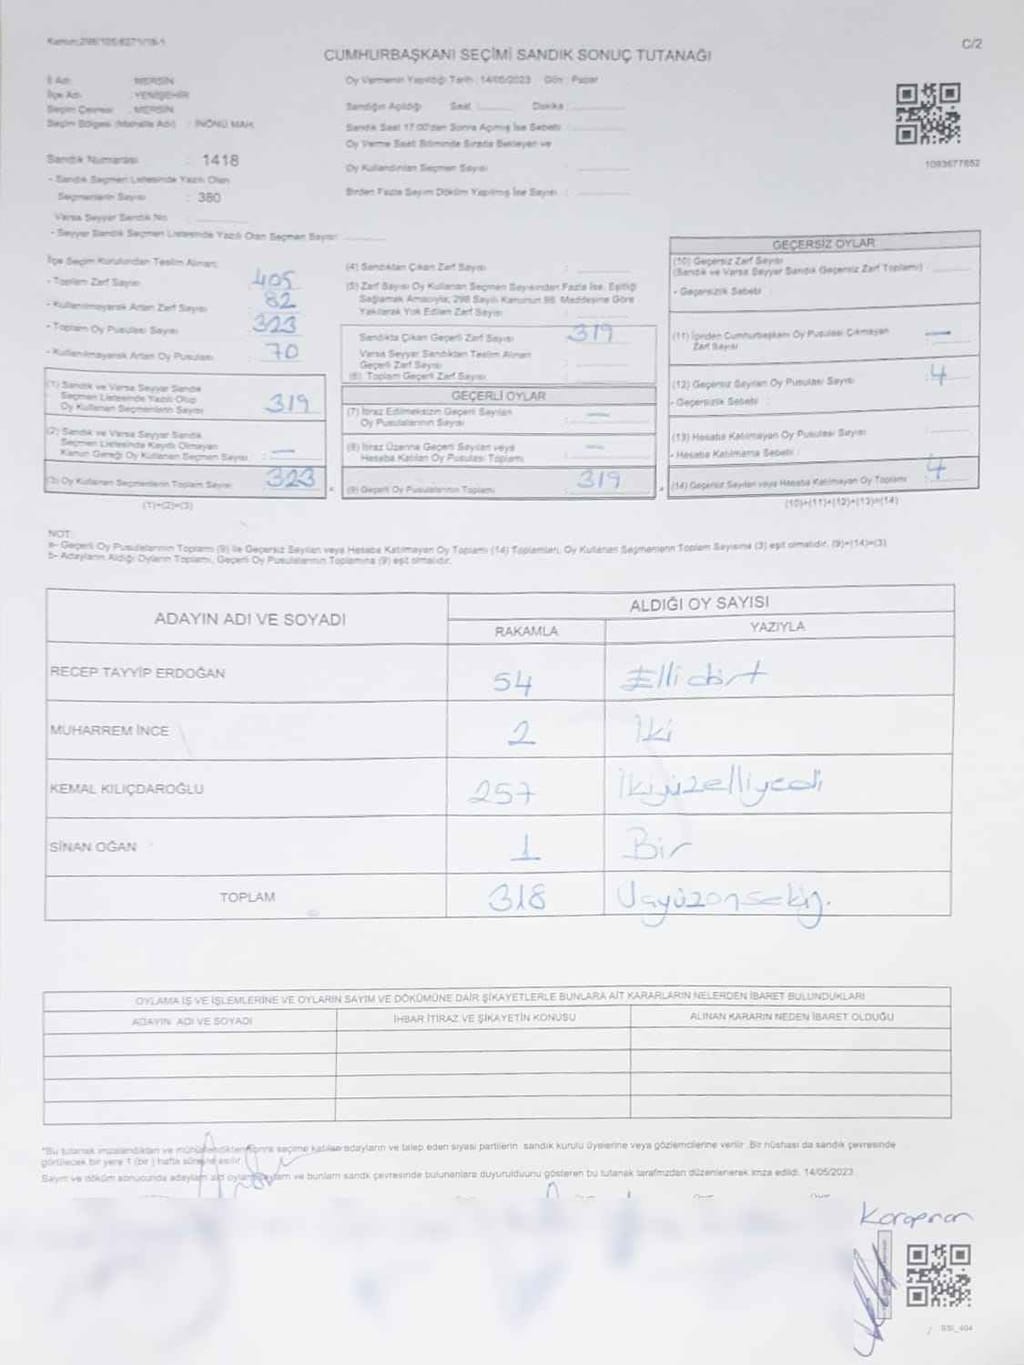 Kanun:298/105/6271/18-1
C/2
CUMHURBAŞKANI SEÇİMİ SANDIK SONUÇ TUTANAĞI
İl Adı : MERSİN
İlçe Adı : YENİŞEHİR
Seçim Çevresi : MERSİN
Seçim Bölgesi (Mahalle Adı) : İNÖNÜ MAH.
Sandık Numarası : 1418
- Sandık Seçmen Listesinde Yazılı Olan
Seçmenlerin Sayısı : 380
Varsa Seyyar Sandık No :
- Seyyar Sandık Seçmen Listesinde Yazılı Olan Seçmen Sayısı:
Oy Vermenin Yapıldığı Tarih : 14/05/2023 Gün : Pazar
Sandığın Açıldığı Saat Dakika
Sandık Saat 17:00'den Sonra Açılmış İse Sebebi :
Oy Verme Saati Bitiminde Sırada Bekleyen ve
Oy Kullandırılan Seçmen Sayısı :
Birden Fazla Sayım Döküm Yapılmış İse Sayısı :
1093677652
İlçe Seçim Kurulundan Teslim Alınan;
- Toplam Zarf Sayısı : 405
- Kullanılmayarak Artan Zarf Sayısı : 82
- Toplam Oy Pusulası Sayısı : 323
- Kullanılmayarak Artan Oy Pusulası : 70
(1) Sandık ve Varsa Seyyar Sandık
Seçmen Listesinde Yazılı Olup
Oy Kullanan Seçmenlerin Sayısı : 319
(2) Sandık ve Varsa Seyyar Sandık
Seçmen Listesinde Kayıtlı Olmayan
Kanun Gereği Oy Kullanan Seçmen Sayısı : —
(3) Oy Kullanan Seçmenlerin Toplam Sayısı : 323
(1)+(2)=(3)
(4) Sandıktan Çıkan Zarf Sayısı :
(5) Zarf Sayısı Oy Kullanan Seçmen Sayısından Fazla İse, Eşitliği
Sağlamak Amacıyla; 298 Sayılı Kanunun 98. Maddesine Göre
Yakılarak Yok Edilen Zarf Sayısı :
Sandıkta Çıkan Geçerli Zarf Sayısı : 319
Varsa Seyyar Sandıktan Teslim Alınan
Geçerli Zarf Sayısı :
(6) Toplam Geçerli Zarf Sayısı :
GEÇERLİ OYLAR
(7) İtiraz Edilmeksizin Geçerli Sayılan
Oy Pusulalarının Sayısı : —
(8) İtiraz Üzerine Geçerli Sayılan veya
Hesaba Katılan Oy Pusulası Toplamı : —
(9) Geçerli Oy Pusulalarının Toplamı : 319
GEÇERSİZ OYLAR
(10) Geçersiz Zarf Sayısı
(Sandık ve Varsa Seyyar Sandık Geçersiz Zarf Toplamı) :
- Geçersizlik Sebebi :
(11) İçinden Cumhurbaşkanı Oy Pusulası Çıkmayan
Zarf Sayısı : —
(12) Geçersiz Sayılan Oy Pusulası Sayısı : 4
- Geçersizlik Sebebi :
(13) Hesaba Katılmayan Oy Pusulası Sayısı :
- Hesaba Katılmama Sebebi :
(14) Geçersiz Sayılan veya Hesaba Katılmayan Oy Toplamı : 4
(10)+(11)+(12)+(13)=(14)
NOT:
a- Geçerli Oy Pusulalarının Toplamı (9) ile Geçersiz Sayılan veya Hesaba Katılmayan Oy Toplamı (14) Toplamları, Oy Kullanan Seçmenlerin Toplam Sayısına (3) eşit olmalıdır. (9)+(14)=(3)
b- Adayların Aldığı Oyların Toplamı, Geçerli Oy Pusulalarının Toplamına (9) eşit olmalıdır.
ADAYIN ADI VE SOYADI ALDIĞI OY SAYISI
RAKAMLA YAZIYLA
RECEP TAYYİP ERDOĞAN 54 Elli dört
MUHARREM İNCE 2 İki
KEMAL KILIÇDAROĞLU 257 İkiyüzelliyedi
SİNAN OĞAN 1 Bir
TOPLAM 318 Üçyüzonsekiz.
OYLAMA İŞ VE İŞLEMLERİNE VE OYLARIN SAYIM VE DÖKÜMÜNE DAİR ŞİKAYETLERLE BUNLARA AİT KARARLARIN NELERDEN İBARET BULUNDUKLARI
ADAYIN ADI VE SOYADI İHBAR İTİRAZ VE ŞİKAYETİN KONUSU ALINAN KARARIN NEDEN İBARET OLDUĞU
*Bu tutanak imzalandıktan ve mühürlendikten sonra seçime katılan adayların ve talep eden siyasi partilerin sandık kurulu üyelerine veya gözlemcilerine verilir. Bir nüshası da sandık çevresinde
görülecek bir yere 1 (bir) hafta süreyle asılır.
Sayım ve döküm sonucunda adayların ve bunların sandık çevresinde bulunanlara duyurulduğunu gösteren bu tutanak tarafımızdan düzenlenerek imza edildi. 14/05/2023